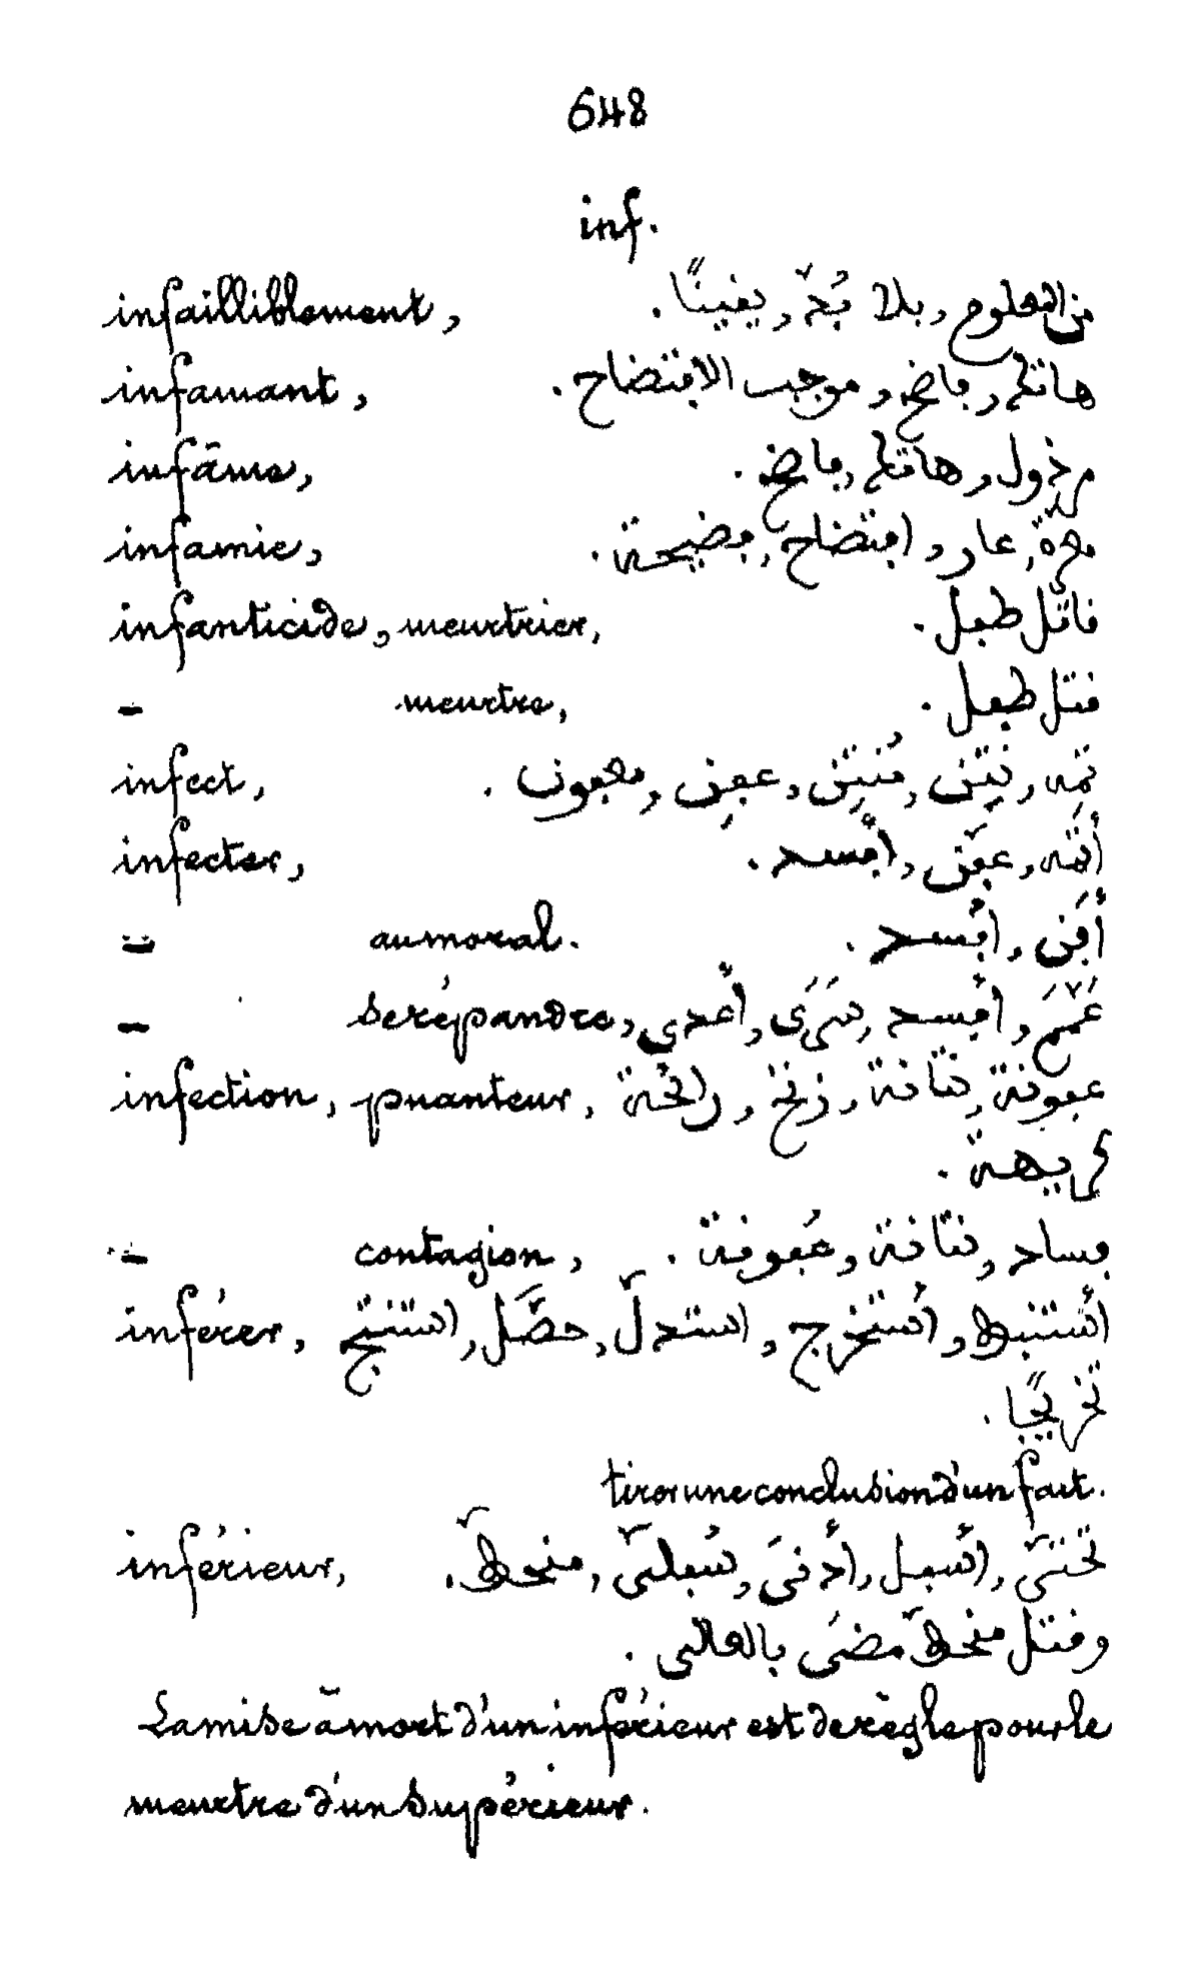 648
inf.
infailliblement, من المعلوم, بلا بُدّ, يقينًا.
infamant, هاتك, فاضح, موجب الافتضاح.
infâme, مرذول, هاتك, فاضح.
infamie, معرّة, عار, افتضاح, فضيحة.
infanticide, meurtrier, قاتل طفل.
- meurtre, قتل طفل.
infect, تَمِه, نَتِن, مُنتِن, عفِن, معفون.
infecter, أتمه, عفّن, أفسد.
- au moral. أفِن, أفسد.
- se répandre, عَمَّمَ, أفسد, سَرَى, أعدى
infection, puanteur, عفونة, نتانة, زنخ, رائحة
كريهة.
- contagion, فساد, نتانة, عُفونة.
inférer, أستنبط, أستخرج, استدلّ, حصَّل, استنتج
تخريجًا.
tirer une conclusion d'un fait.
inférieur, تحتىّ, أسفل, أدنى, سُفلىّ, منحطّ.
وقتل منحطّ مضى بالعالى.
La mise à mort d'un inférieur est de règle pour le
meurtre d'un supérieur.